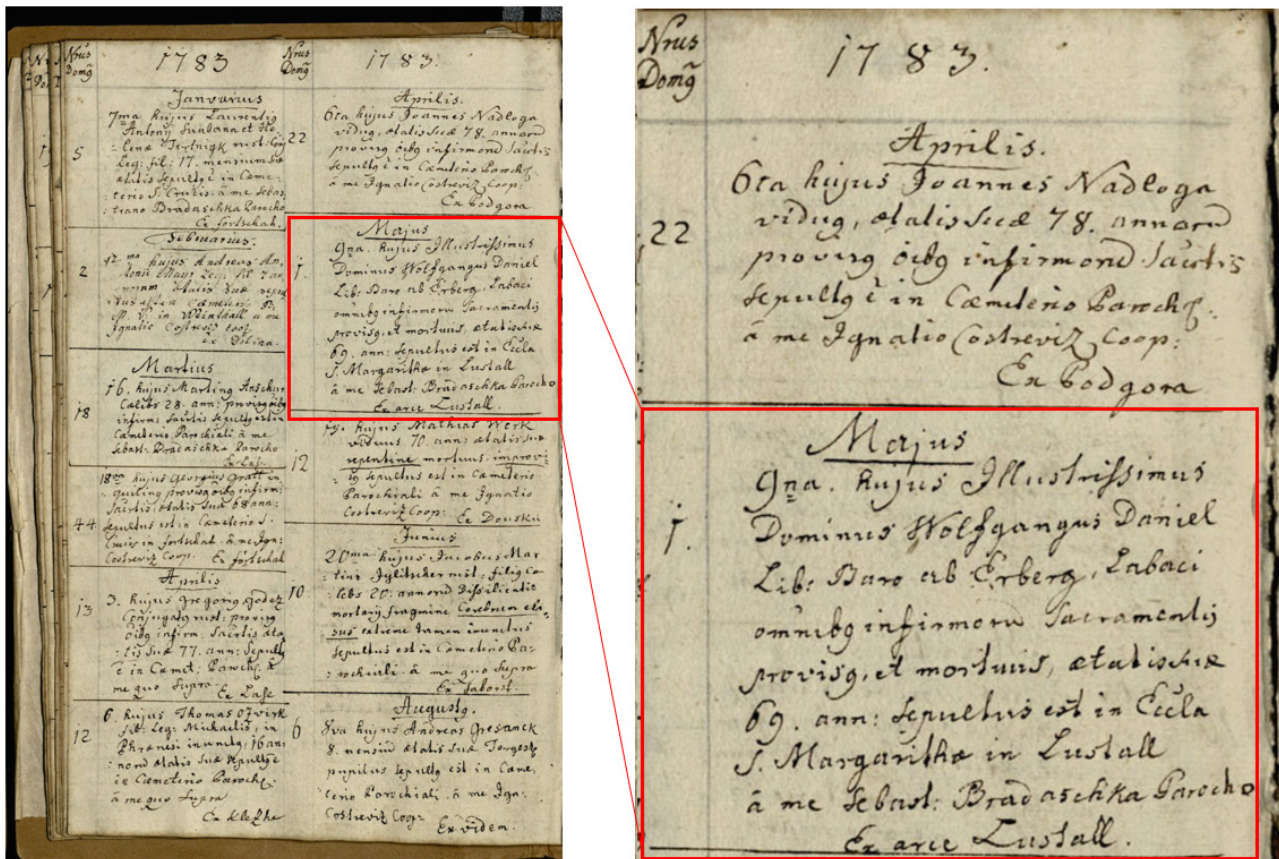 Nrus
Domg
1783
Januarius
5
7ma hujus Laurentig
Antonij Fundana et He-
lenæ Tertnigk rust: Conj
Leg: fil: 17. mensium suæ
ætatis sepultg ē in Cæme-
terio S. Crucis. à me Sebas-
tiano Bradaschka Parocho
Ex fortschah.
Februarius.
2
12ma hujus Andreas An-
tonii Leg: fil 7 an-
norum ætatis suæ
est in Cæmeterio B.
M. V. in Weinthall à me
Ignatio Costreviz Coop.
ex Dolina.
Martius
18
16. hujus Marting
Cælebs 28. ann: provisg oibg
infirm: sacrtis sepultg est in
Cæmeterio Parochiali à me
Sebast: Bradaschka Parocho
44
18va hujus Georgius Gratt in-
quiling provisg oibg infirm:
sacrtis, ætatis suæ 68 ann:
sepultus est in Cæmeterio S.
Crucis in fortschah. à me Ign:
Costreviz Coop. Ex fortschah
Aprilis
13
3. hujus Gregorig Godez
Conjugatg rust: provisg
oibg infirm: sacrtis æta-
tis suæ 77. ann: sepultg
ē in Cæmet: Paroch. à
me quo supra. Ex Lase
12
6. hujus Thomas Ozwirk
fil: Leg: Michaelis, in
Phrænesi inundg, 16 an-
norū ætatis suæ sepultg ē
in Cæmeterio Paroch.
à me quo supra
Nrus
Domg
1783.
Aprilis.
22
6ta hujus Joannes Nadloga
vidug, ætatis suæ 78. annorū
provisg oibg infirmorū sacrtis
sepultg ē in Cæmeterio Paroch.
à me Ignatio Costreviz Coop:
Ex Podgora
Majus
1.
9na. hujus Illustrissimus
Dominus Wolfgangus Daniel
Lib: Baro ab Erberg, Labaci
omnibg infirmorū Sacramentis
provisg, et mortuus, ætatis suæ
69. ann: sepultus est in Eccla
S. Margarithæ in Lustall
à me Sebast: Bradaschka Parocho
Ex arce Lustall.
12
19. hujus Mathias Werk
viduus 70. ann: ætatis suæ
repentine mortuus, improvi-
sg sepultus est in Cæmeterio
Parochiali à me Ignatio
Costreviz Coop: Ex Dousku
Junius
10
20ma hujus Jacobus Mar-
tini Jglitscher rust: filig Cæ-
lebs 20: annorū dissilientis
mortarij fragmine Cerebrum eli-
sus extreme tamen inunctus
sepultus est in Cæmeterio Pa-
rochiali. à me quo supra
Ex Saborst.
Augustg.
6
8va hujus Andreas Gresanek
8. mensiū ætatis suæ Tergest:
pupilus sepultg est in Cæme-
terio Parochiali. à me Ign:
Costreviz Coop:
Ex viden.
Nrus
Domg
1783.
Aprilis.
22
6ta hujus Joannes Nadloga
vidug, ætatis suæ 78. annorū
provisg oibg infirmorū sacrtis
sepultg ē in Cæmeterio Paroch.
à me Ignatio Costreviz Coop:
Ex Podgora
Majus
1.
9na. hujus Illustrissimus
Dominus Wolfgangus Daniel
Lib: Baro ab Erberg, Labaci
omnibg infirmorū Sacramentis
provisg, et mortuus, ætatis suæ
69. ann: sepultus est in Eccla
S. Margarithæ in Lustall
à me Sebast: Bradaschka Parocho
Ex arce Lustall.